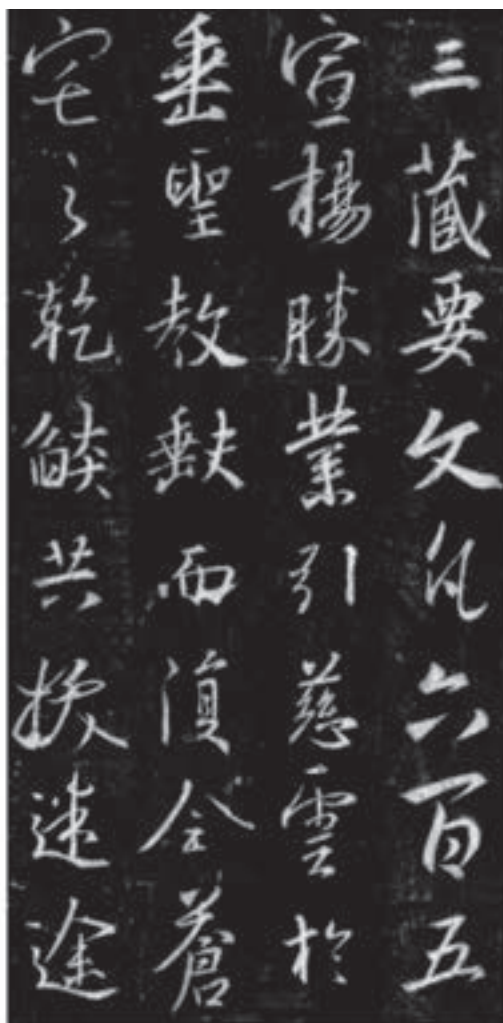 三藏要文凡六百五
宣楊勝業引慈雲於
垂聖教缺而復全蒼
宅之乾焰共拔迷途